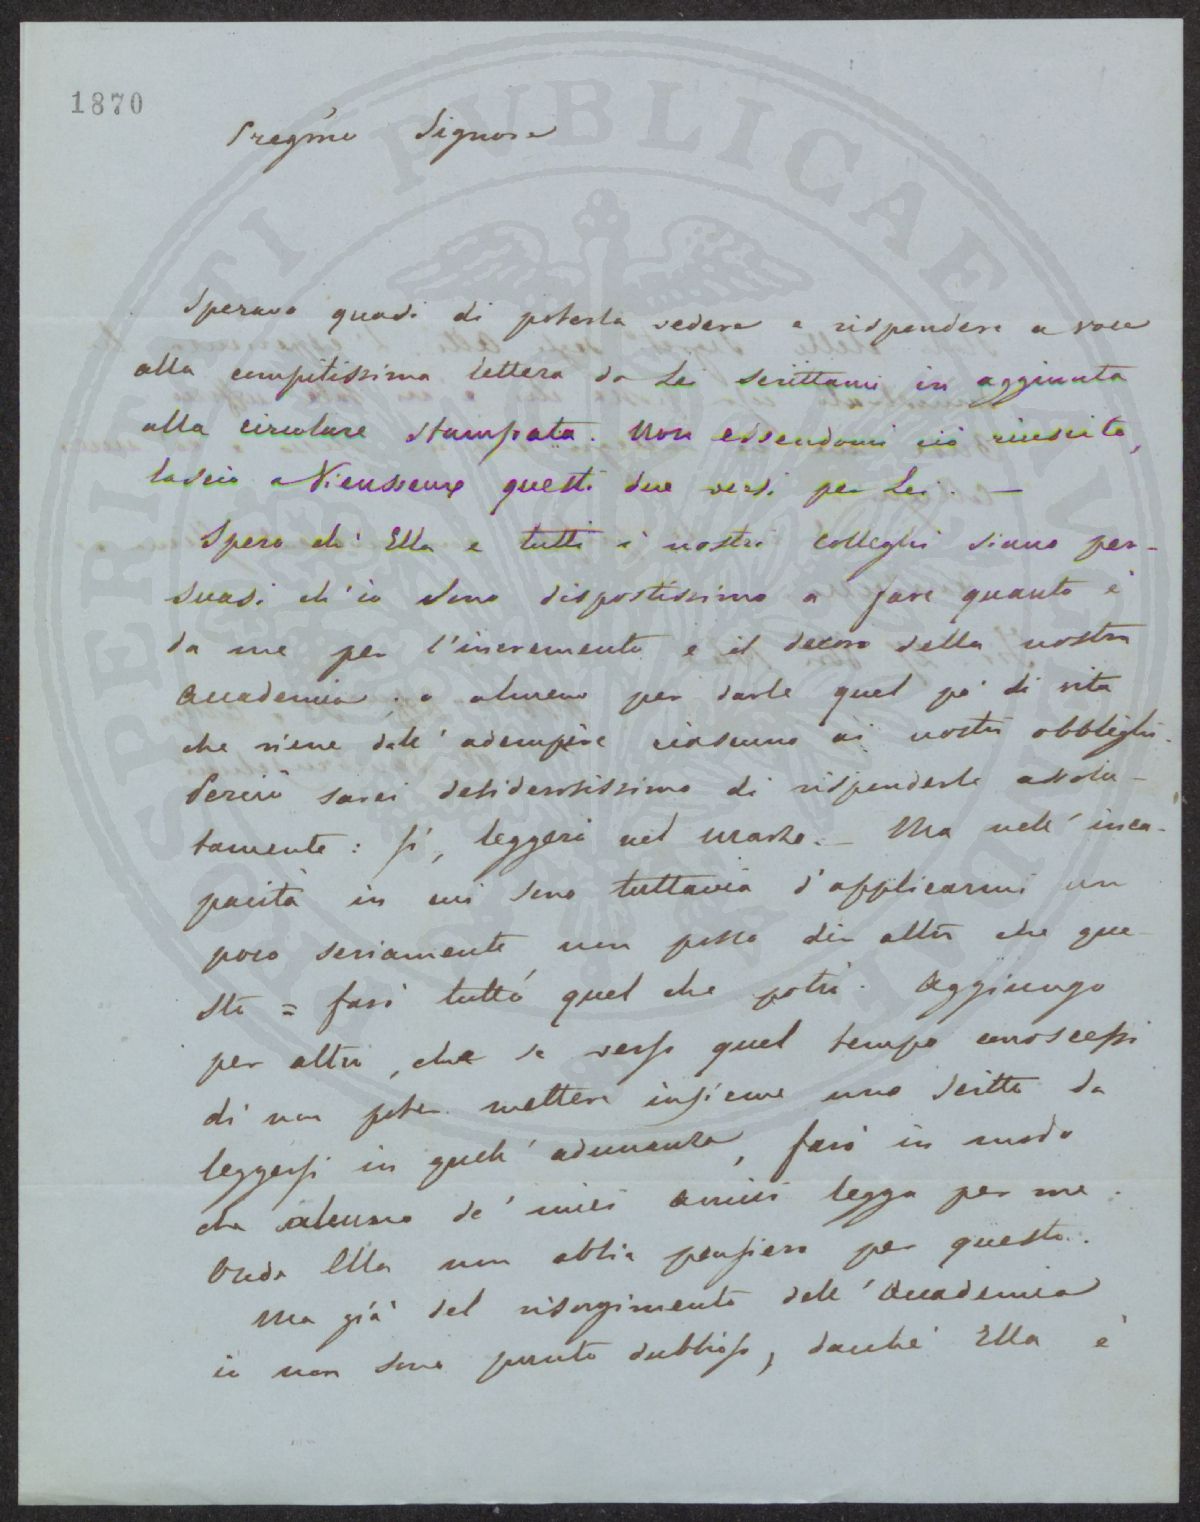 1870
Pregmo Signore
Speravo quasi di poterla vedere e rispondere a voce
alla compitissima lettera da Lei scrittami in aggiunta
alla circolare stampata. Non essendomi ciò riuscito,
lascio a Vieusseux questi due versi per Lei. —
Spero ch' Ella e tutti i nostri colleghi siano per-
suasi ch' io sono dispostissimo a fare quanto è
da me per l'incremento e il decoro della nostra
Accademia: o almeno per darle quel pò di vita
che viene dall' adempire ciascuno ai nostri obblighi.
Perciò sarei desiderosissimo di risponderle assolu-
tamente: sì, leggerò nel marzo. — Ma nell' inca-
pacità in cui sono tuttavia d'applicarmi un
poco seriamente, non posso dir altro che que-
sto = farò tutto quel che potrò. Aggiungo
per altro, che se verso quel tempo conoscessi
di non poter mettere insieme uno scritto da
leggersi in quell' adunanza, farò in modo
che alcuno de' miei amici legga per me.
Onde Ella non abbia pensiero per questo.
Ma già del risorgimento dell' Accademia
io non sono punto dubbioso, dacchè Ella è
PERITI PUBLICAE